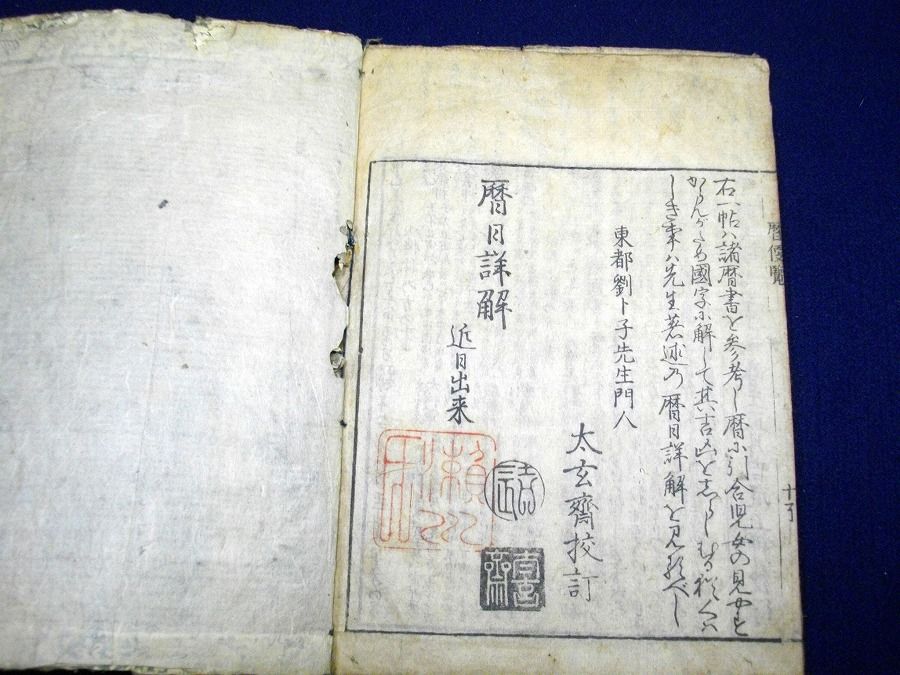 右一帖ハ諸暦書を参考し暦に引合児女の見やす
からんがため國字に解して其吉凶を志らしむる なり
しき事ハ先生著述の暦目詳解を見るべし
東都劉卜子先生門人
太玄齋挍訂
暦日詳解
近日出来
暦便覧